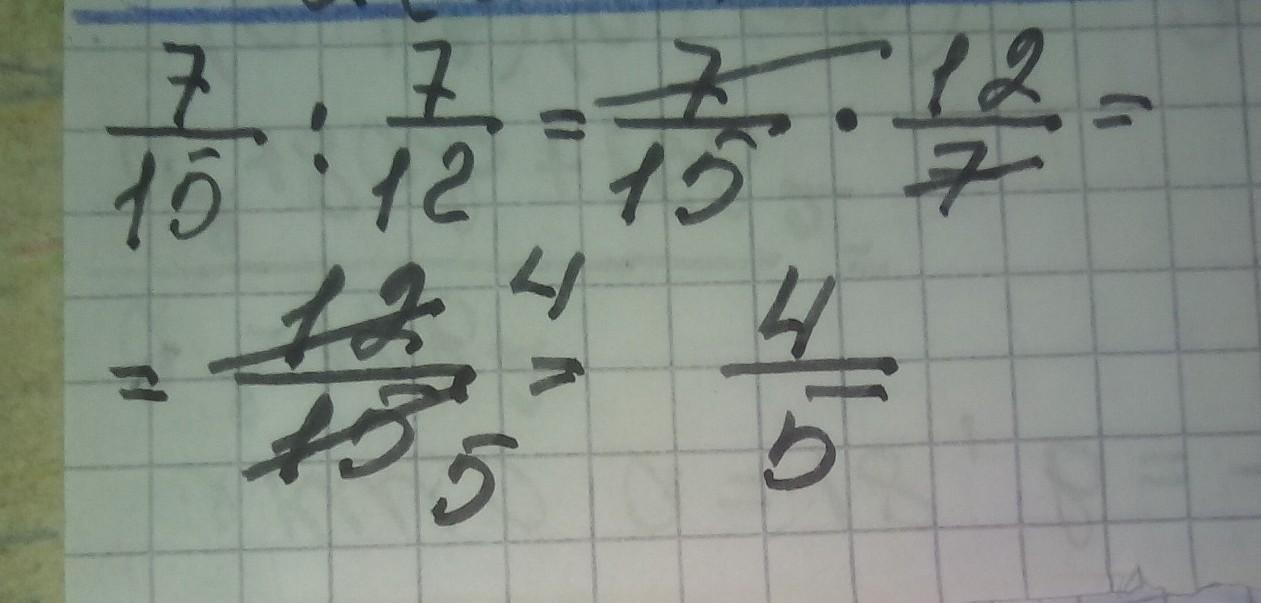 7/15 : 7/12 = 7/15 · 12/7 =
= 12/15 4/5 = 4/5